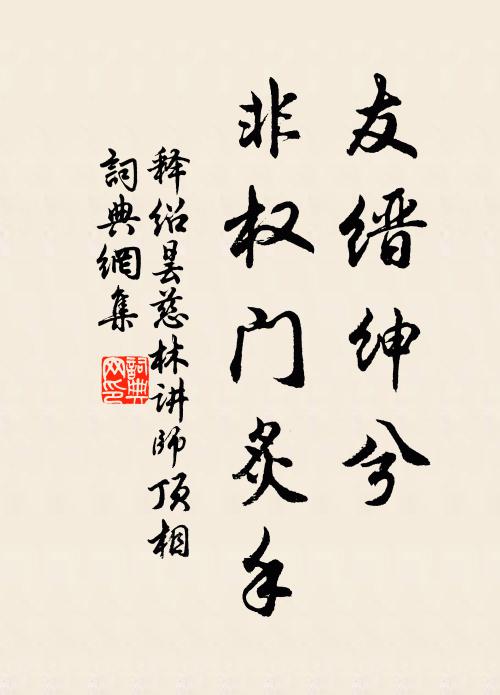 友缙绅兮
非权门炙手
释绍昙慈林讲师顶相
詞典網集
詞典
网印